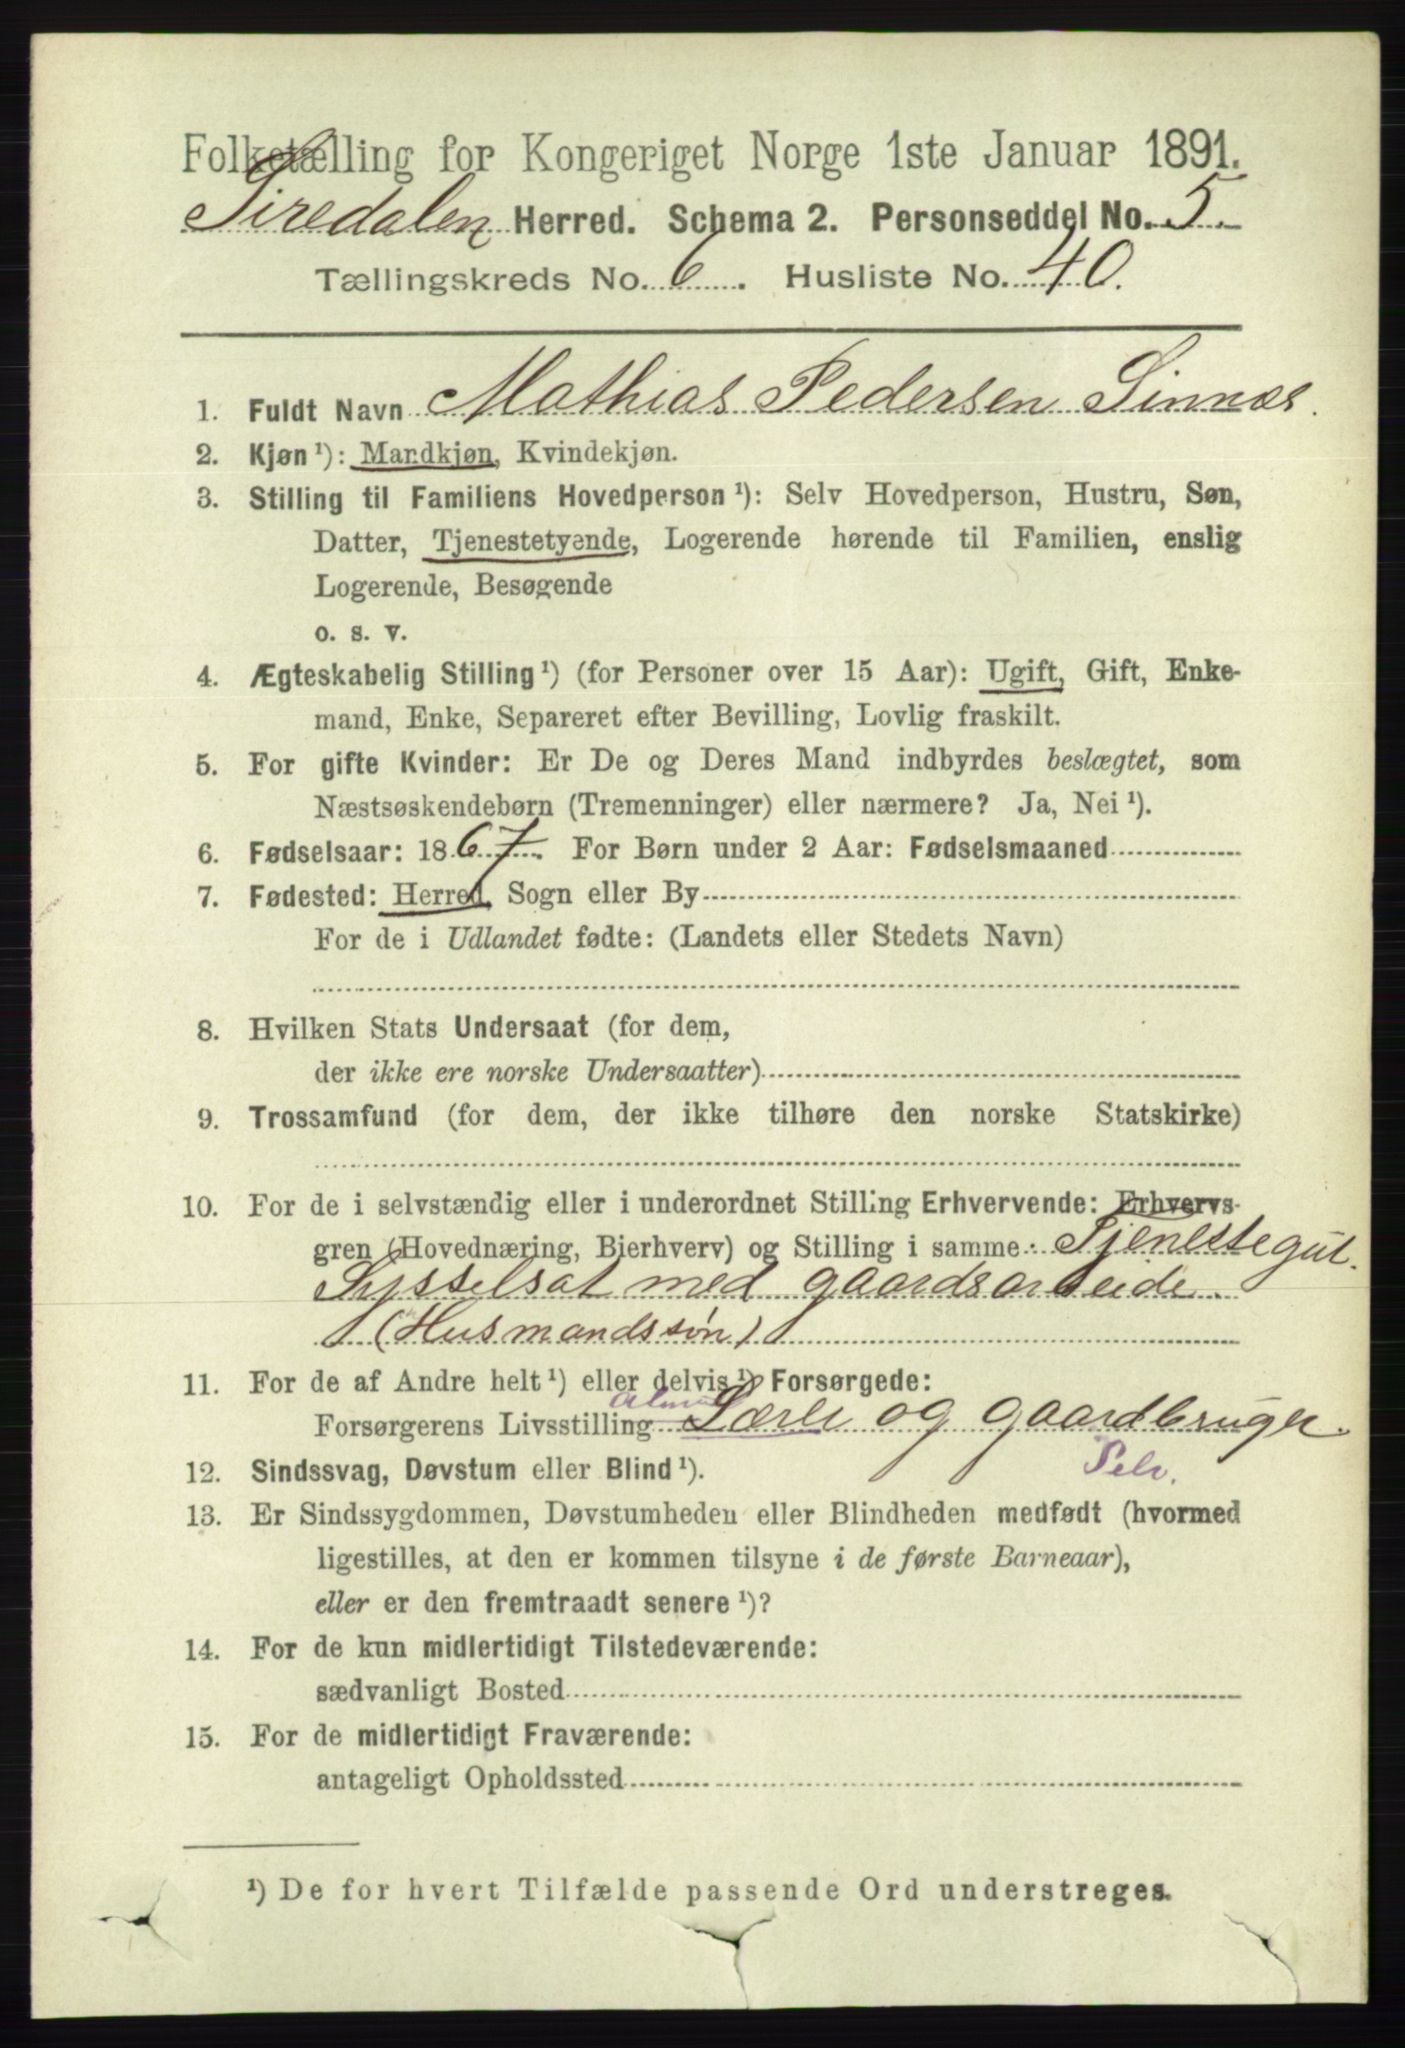 Folketælling for Kongeriget Norge 1ste Januar 1891.
Siredalen Herred. Schema 2. Personseddel No. 5.
Tællingskreds No. 6. Husliste No. 40.
1. Fuldt Navn Mathias Pedersen Sinnæs.
2. Kjøn ¹): Mandkjøn, Kvindekjøn.
3. Stilling til Familiens Hovedperson ¹): Selv Hovedperson, Hustru, Søn,
Datter, Tjenestetyende, Logerende hørende til Familien, enslig
Logerende, Besøgende
o. s. v.
4. Ægteskabelig Stilling ¹) (for Personer over 15 Aar): Ugift, Gift, Enke-
mand, Enke, Separeret efter Bevilling, Lovlig fraskilt.
5. For gifte Kvinder: Er De og Deres Mand indbyrdes beslægtet, som
Næstsøskendebørn (Tremenninger) eller nærmere? Ja, Nei ¹).
6. Fødselsaar: 1867. For Børn under 2 Aar: Fødselsmaaned
7. Fødested: Herred, Sogn eller By
For de i Udlandet fødte: (Landets eller Stedets Navn)
8. Hvilken Stats Undersaat (for dem,
der ikke ere norske Undersaatter)
9. Trossamfund (for dem, der ikke tilhøre den norske Statskirke)
10. For de i selvstændig eller i underordnet Stilling Erhvervende: Erhvervs-
gren (Hovednæring, Bierhverv) og Stilling i samme: Tjenestegut.
Sysselsat med gaardsarbeide.
(Husmandssøn)
11. For de af Andre helt ¹) eller delvis ¹) Forsørgede:
Forsørgerens Livsstilling Lærer og gaardbruger.
12. Sindssvag, Døvstum eller Blind ¹).
13. Er Sindssygdommen, Døvstumheden eller Blindheden medfødt (hvormed
ligestilles, at den er kommen tilsyne i de første Barneaar),
eller er den fremtraadt senere ¹)?
14. For de kun midlertidigt Tilstedeværende:
sædvanligt Bosted
15. For de midlertidigt Fraværende:
antageligt Opholdssted
¹) De for hvert Tilfælde passende Ord understreges.